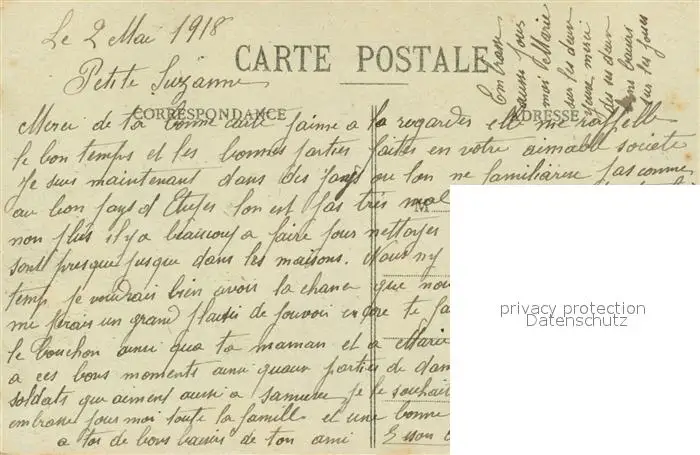 Le 2 Mai 1918
CARTE POSTALE
Petite Suzanne
CORRESPONDANCE
ADRESSE
Merci de ta bonne carte j'aime a la regardes elle me rappelle
le bon temps et les bonnes parties faites en votre aimable societe
Je suis maintenant dans des pays ou l'on ne familiarise pas comme
au bon pays d' l'on est pas très mal
M
non plus il y a beaucoup a faire pour nettoyer
sont presque jusque dans les maisons. Nous n'y
temp je voudrais bien avoir la chance que nou
me ferais un grand plaisir de pouvoir encore te fa
le bouchon ainsi qua ta maman et a Marie
a ces bons moments ainsi quaux parties de dam
soldats que aiment aussi a samuser je le souhait
embrasse pour moi toute la famille et une bonne
a toi de bons baisers de ton ami
Embrasse
pour
moi Marie
sur les deux
joues merci
les deux
bons baisers
sur les joues
privacy protection
Datenschutz